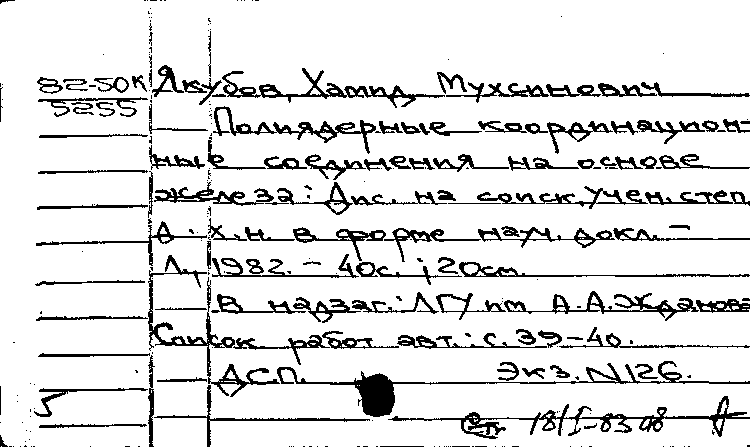 82-50к
5255
Якубов, Хамид Мухсинович
Полиядерные координацион-
ные соединения на основе
железа: Дис. на соиск. учен. степ.
д. х. н. в форме науч. докл. -
Л., 1982. - 40с. ; 20см.
В надзаг.: ЛГУ им. А.А. Жданова
Список работ авт.: с. 39-40.
ДСП. Экз. N 126.
18/I-83